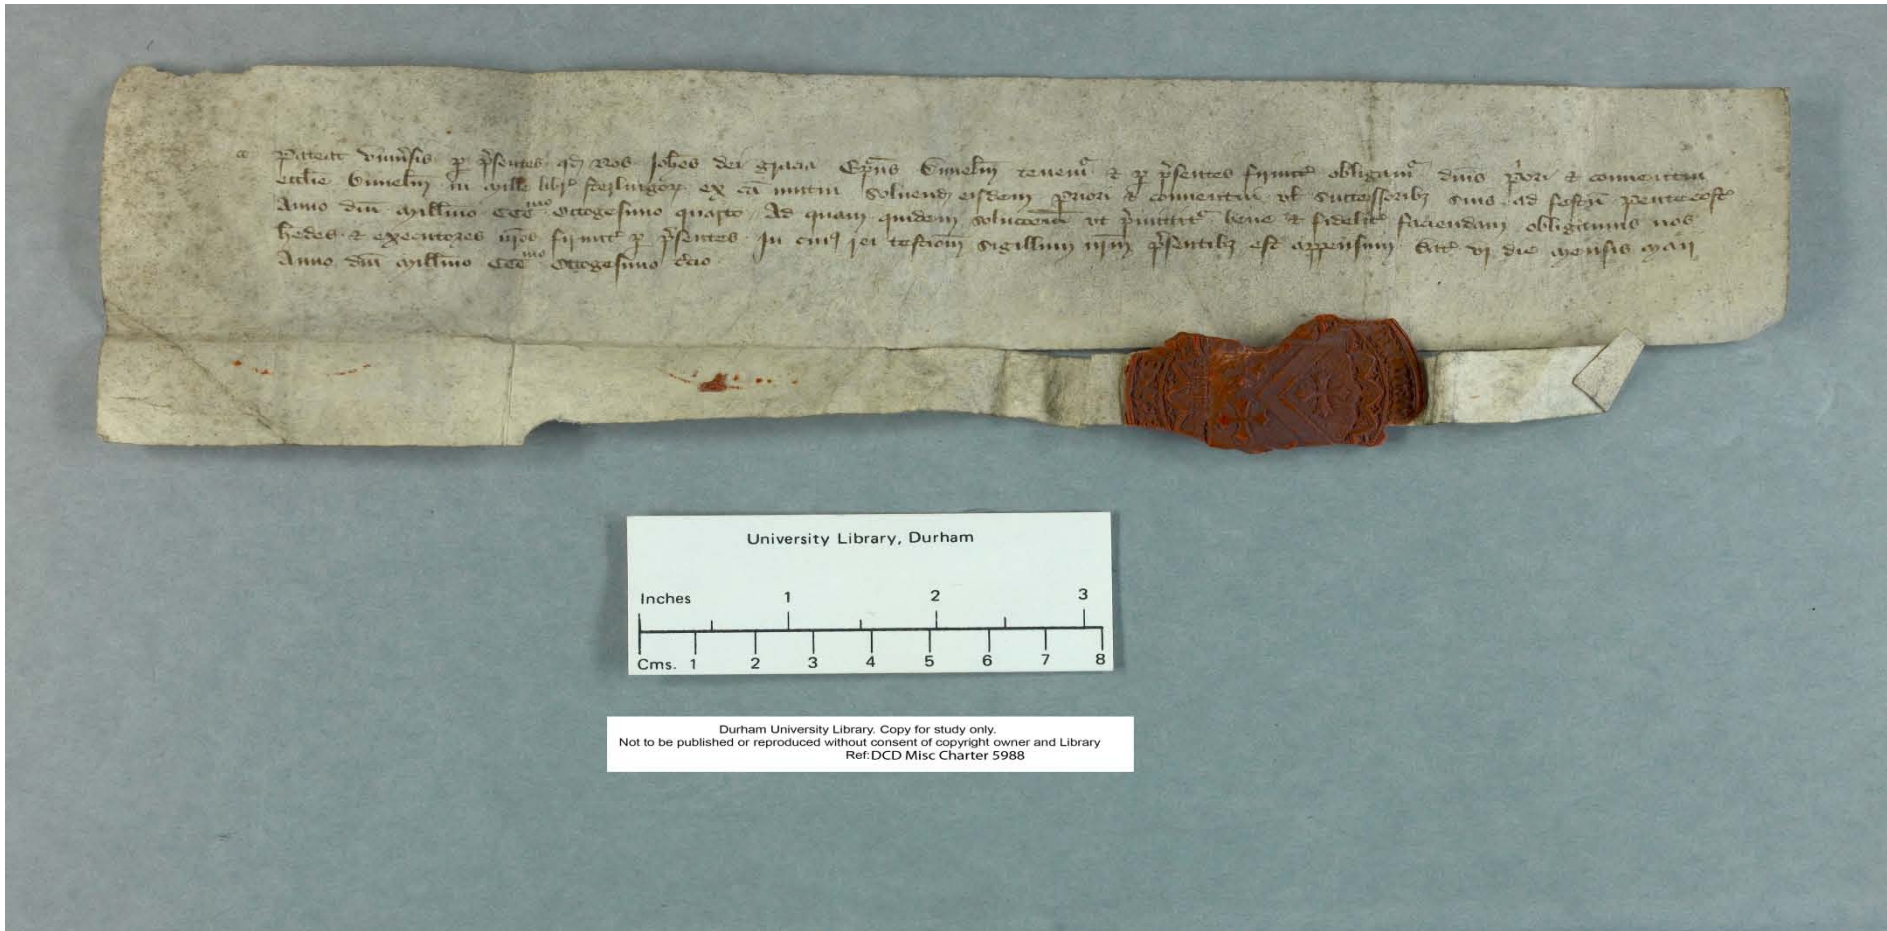 Pateat univ͛sis p͛ p͛sentes qd̛ Nos Joh̅es dei gracia Ep̅us Dunelm̅ tenem᷒ & p͛ p͛sentes firmit͛ obligam᷒ dn̅is p͛ori & conventui
eccl̅ie Dunelm̅ in mille libr͛ sterlingoꝝ ex ca̅ mutui Solvend̛ eisdem Priori & conventui vl̛ successoribꝫ suis ad festu̅ Pentecost͛
Anno dn̅i Mill̅mo CCCmo Octogesimo quarto Ad quam quidem soluc̅o̅em ut p͛mittit᷒ bene & fidelit͛ faciendam obligamus nos
h̅edes & executores nr̅os firmit͛ p͛ p͛sentes In cuiꝰ rei testi̅om̅ Sigillum nr̅m p͛sentibꝫ est appensum Dat͛ vj die mensis Maii
Anno dn̅i Mill̅mo CCCmo Octogesimo t͛cio
University Library, Durham
Inches 1 2 3
Cms. 1 2 3 4 5 6 7 8
Durham University Library. Copy for study only.
Not to be published or reproduced without consent of copyright owner and Library
Ref: DCD Misc Charter 5988